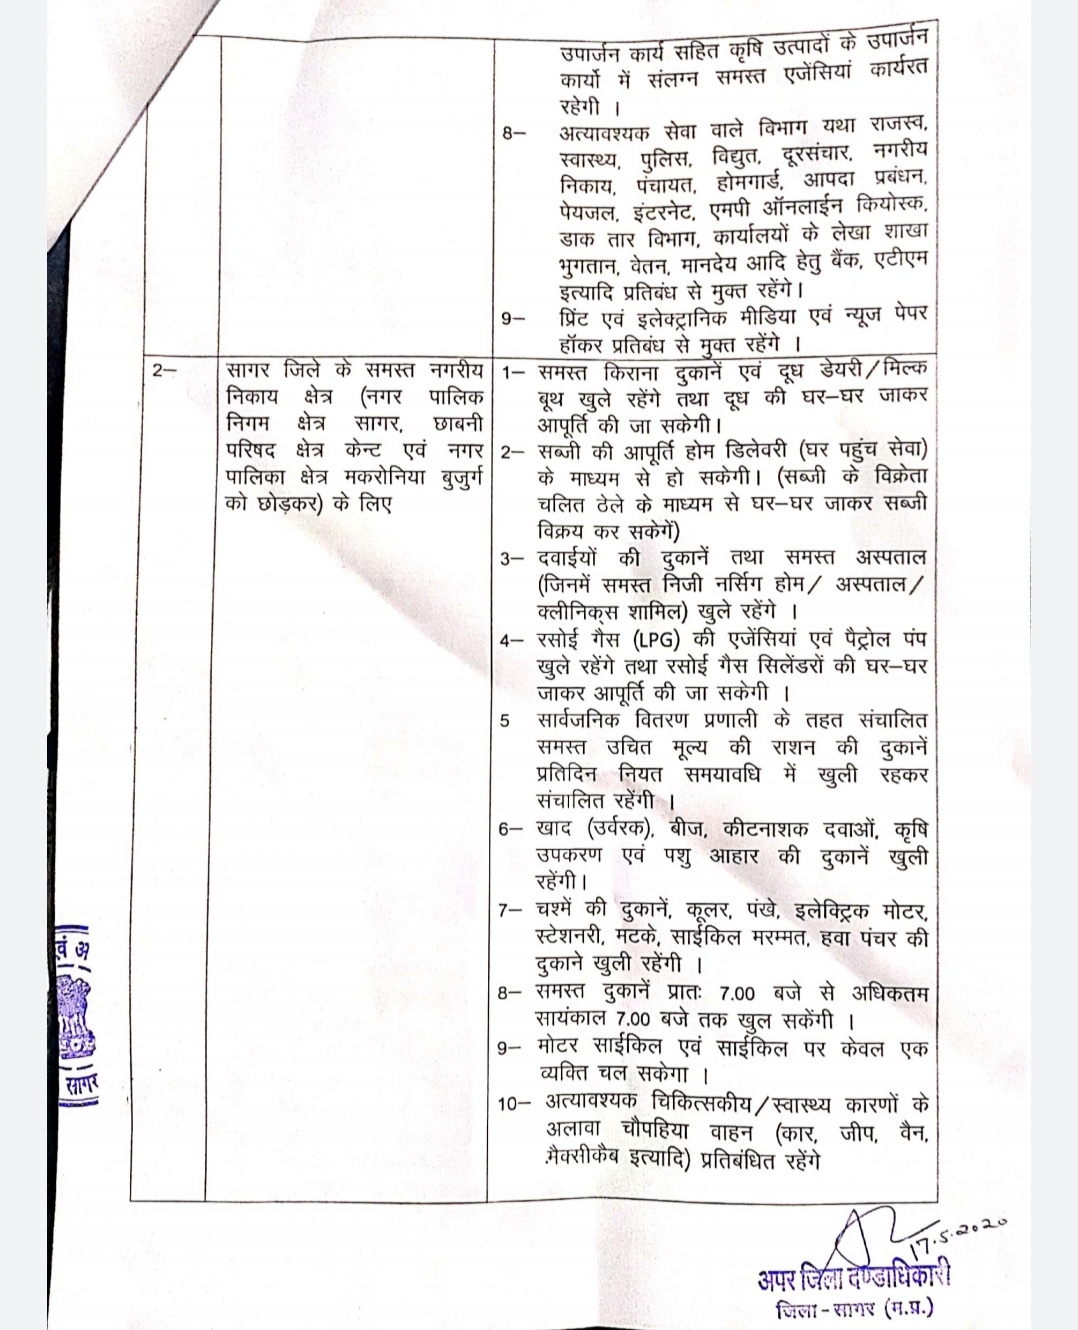 उपार्जन कार्य सहित कृषि उत्पादों के उपार्जन
कार्यो में संलग्न समस्त एजेंसियां कार्यरत
रहेगी ।
8– अत्यावश्यक सेवा वाले विभाग यथा राजस्व,
स्वास्थ्य, पुलिस, विद्युत, दूरसंचार, नगरीय
निकाय, पंचायत, होमगार्ड, आपदा प्रबंधन,
पेयजल, इंटरनेट, एमपी ऑनलाईन कियोस्क,
डाक तार विभाग, कार्यालयों के लेखा शाखा
भुगतान, वेतन, मानदेय आदि हेतु बैंक, एटीएम
इत्यादि प्रतिबंध से मुक्त रहेंगे।
9– प्रिंट एवं इलेक्ट्रानिक मीडिया एवं न्यूज पेपर
हॉकर प्रतिबंध से मुक्त रहेंगे ।
2–
सागर जिले के समस्त नगरीय
निकाय क्षेत्र (नगर पालिक
निगम क्षेत्र सागर, छाबनी
परिषद क्षेत्र केन्ट एवं नगर
पालिका क्षेत्र मकरोनिया बुजुर्ग
को छोड़कर) के लिए
1– समस्त किराना दुकानें एवं दूध डेयरी/मिल्क
बूथ खुले रहेंगे तथा दूध की घर–घर जाकर
आपूर्ति की जा सकेगी।
2– सब्जी की आपूर्ति होम डिलेवरी (घर पहुंच सेवा)
के माध्यम से हो सकेगी। (सब्जी के विक्रेता
चलित ठेले के माध्यम से घर–घर जाकर सब्जी
विक्रय कर सकेगें)
3– दवाईयों की दुकानें तथा समस्त अस्पताल
(जिनमें समस्त निजी नर्सिग होम/ अस्पताल/
क्लीनिक्स शामिल) खुले रहेंगे ।
4– रसोई गैस (LPG) की एजेंसियां एवं पैट्रोल पंप
खुले रहेंगे तथा रसोई गैस सिलेंडरों की घर–घर
जाकर आपूर्ति की जा सकेगी ।
5 सार्वजनिक वितरण प्रणाली के तहत संचालित
समस्त उचित मूल्य की राशन की दुकानें
प्रतिदिन नियत समयावधि में खुली रहकर
संचालित रहेंगी ।
6– खाद (उर्वरक), बीज, कीटनाशक दवाओं, कृषि
उपकरण एवं पशु आहार की दुकानें खुली
रहेंगी।
7– चश्में की दुकानें, कूलर, पंखे, इलेक्ट्रिक मोटर,
स्टेशनरी, मटके, साईकिल मरम्मत, हवा पंचर की
दुकाने खुली रहेंगी ।
8– समस्त दुकानें प्रातः 7.00 बजे से अधिकतम
सायंकाल 7.00 बजे तक खुल सकेंगी ।
9– मोटर साईकिल एवं साईकिल पर केवल एक
व्यक्ति चल सकेगा ।
10– अत्यावश्यक चिकित्सकीय/स्वास्थ्य कारणों के
अलावा चौपहिया वाहन (कार, जीप, वैन,
मैक्सीकैब इत्यादि) प्रतिबंधित रहेंगे
वं अ
सागर
17.5.2020
अपर जिला दण्डाधिकारी
जिला - सागर (म.प्र.)